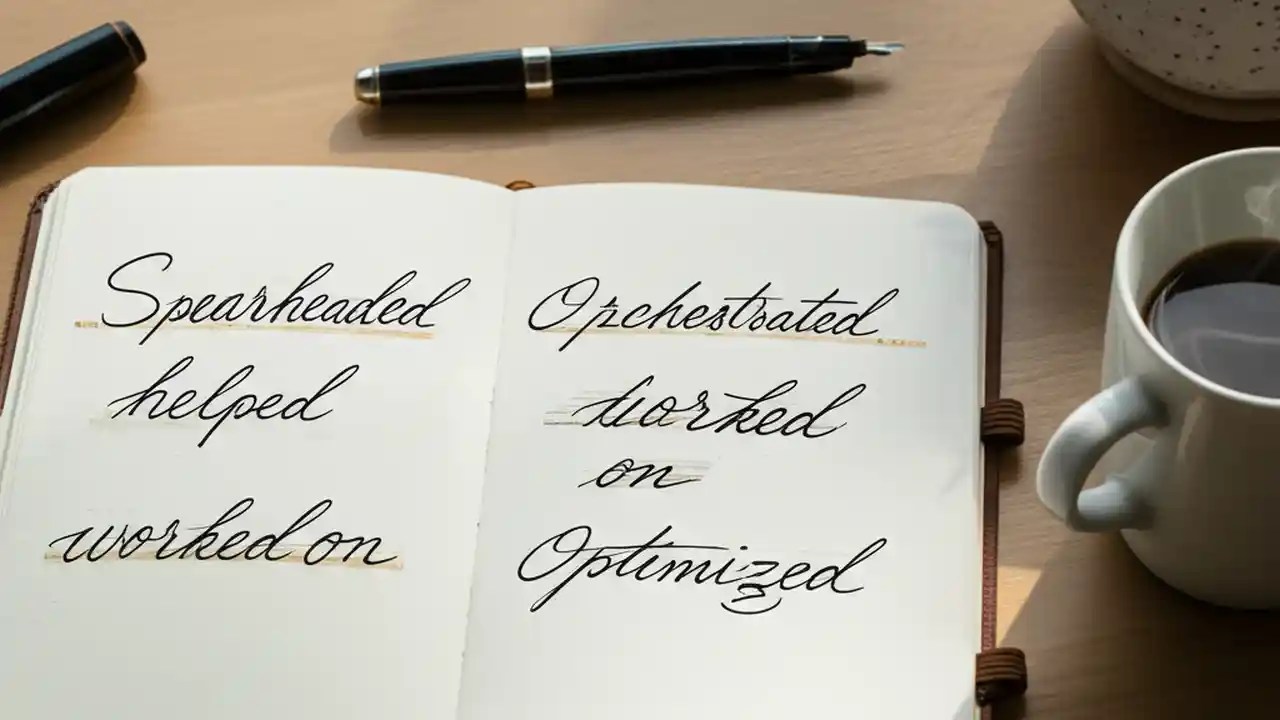 Spearheaded
helped
worked on
Orchestrated
worked
on
Optimized